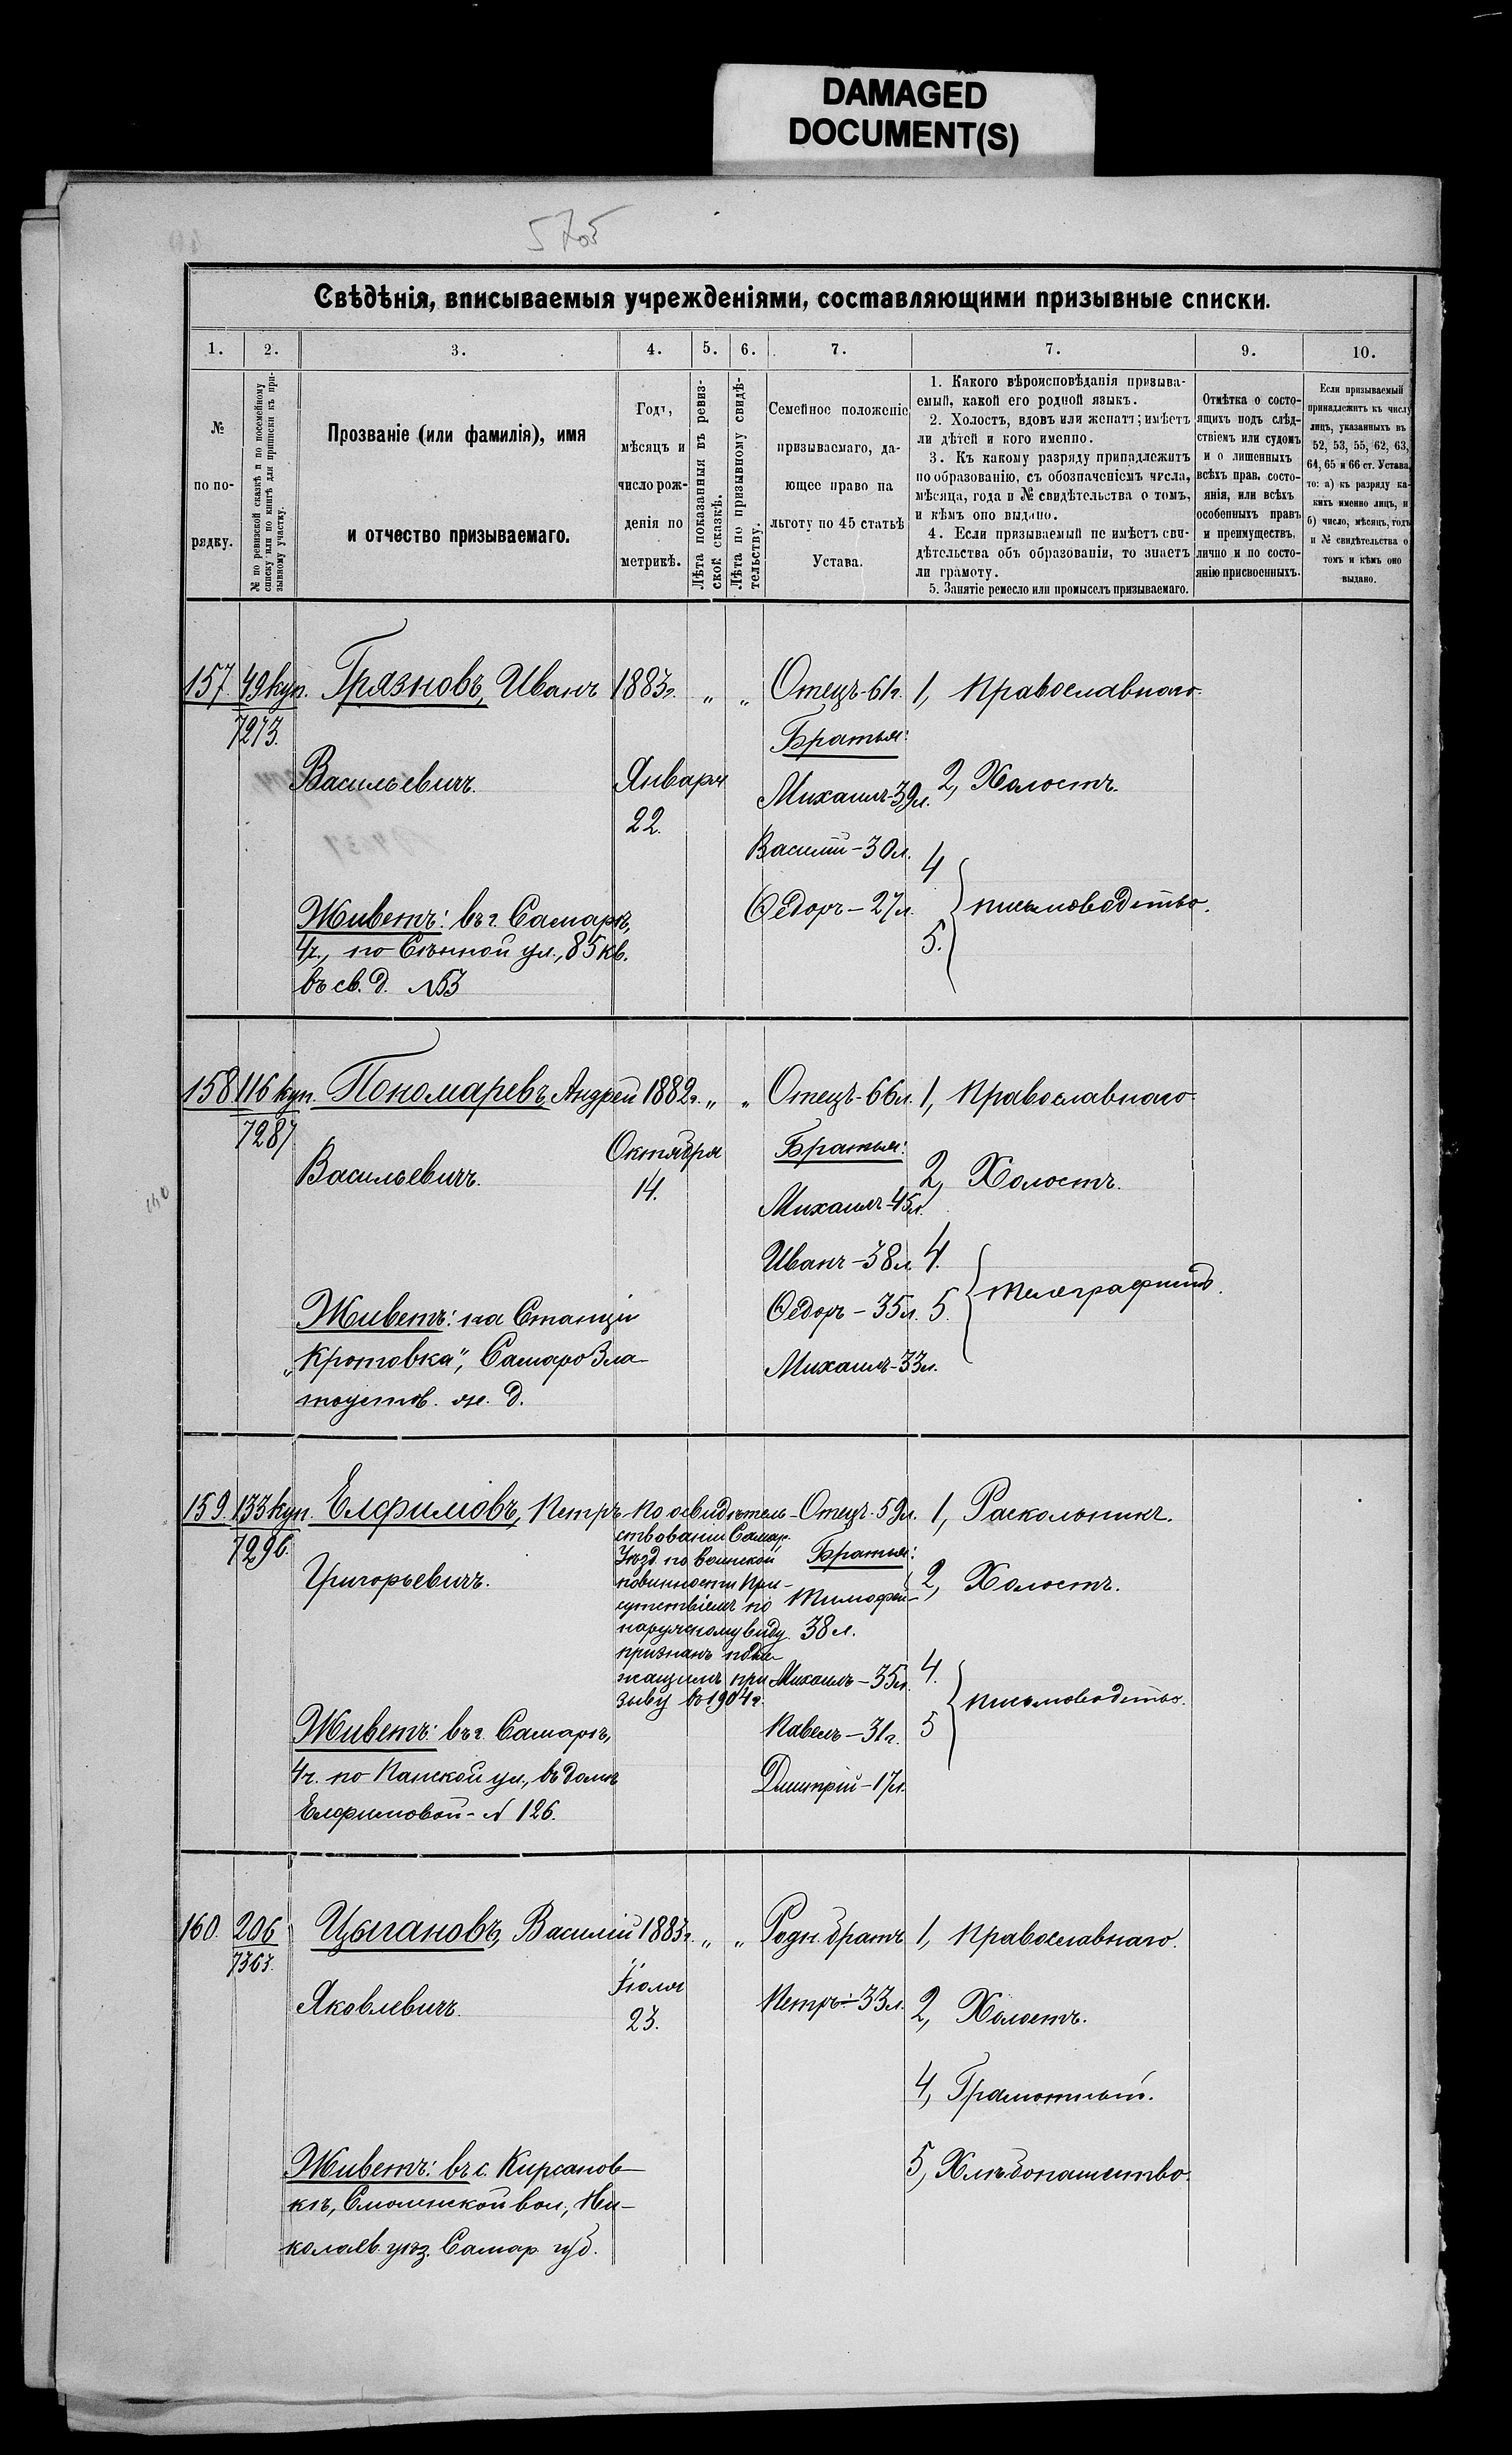 DAMAGED
DOCUMENT(S)
Свѣдѣнія, вписываемыя учрежденіями, составляющими призывные списки.
1. 2. 3. 4. 5. 6. 7. 7. 9. 10.
№
по по-
рядку.
№ по ревизской сказкѣ и по посемейному
списку или по книгѣ для приписки къ при-
зывному участку.
Прозваніе (или фамилія), имя
и отчество призываемаго.
Годъ,
мѣсяцъ и
число рож-
денія по
метрикѣ.
Лѣта показанныя въ ревиз-
ской сказкѣ.
Лѣта по призывному свидѣ-
тельству.
Семейное положеніе
призываемаго, да-
ющее право на
льготу по 45 статьѣ
Устава.
1. Какого вѣроисповѣданія призыва-
емый, какой его родной языкъ.
2. Холостъ, вдовъ или женатъ; имѣетъ
ли дѣтей и кого именно.
3. Къ какому разряду принадлежитъ
по образованію, съ обозначеніемъ числа,
мѣсяца, года и № свидѣтельства о томъ,
и кѣмъ оно выдано.
4. Если призываемый не имѣетъ сви-
дѣтельства объ образованіи, то знаетъ
ли грамоту.
5. Занятіе ремесло или промыселъ призываемаго.
Отмѣтка о состо-
ящихъ подъ слѣд-
ствіемъ или судомъ
и о лишенныхъ
всѣхъ прав. состо-
янія, или всѣхъ
особенныхъ правъ
и преимуществъ,
лично и по состо-
янію присвоенныхъ.
Если призываемый
принадлежитъ къ числу
лицъ, указанныхъ въ
52, 53, 55, 62, 63,
64, 65 и 66 ст. Устава,
то: а) къ разряду ка-
кихъ именно лицъ, и
б) число, мѣсяцъ, годъ
и № свидѣтельства о
томъ и кѣмъ оно
выдано.
157. 49 куп. Грязновъ, Иванъ 1883г. „ „ Отецъ-61г. 1, Православнаго.
7273.
Братья:
Васильевичъ. Января Михаилъ-39л. 2, Холостъ.
22.
Василій-30л. 4
Ѳедоръ-27л. письмоводство.
5.
Живетъ: въ г. Самарѣ,
4ч., по Сѣнной ул., 85 кв.
въ св. д. №53
158 116 куп. Пономаревъ Андрей 1882г. „ „ Отецъ-66л. 1, Православнаго
7287
Октября Братья:
Васильевичъ. 14. 2, Холостъ.
Михаилъ-45л.
Иванъ-38л. 4.
Ѳедоръ-35л. 5. телеграфистъ.
Михаилъ-33л.
Живетъ: на Станціи
„Кротовка", Самаро Зла-
тоустов. ж. д.
159. 133 куп. Елфимовъ, Петръ По освидѣтель- Отецъ-59л. 1, Раскольникъ.
7296.
ствованіи Самар.
Уѣзд. по воинской Братья:
Григорьевичъ. повинности При- 2, Холостъ.
сутствіемъ по Тимофей-
наружному виду 38 л.
признанъ подле-
жащимъ при Михаилъ-35л. 4.
зыву въ 1904г.
Павелъ-31г. 5 письмоводство.
Дмитрій-17л.
Живетъ: въ г. Самарѣ,
4ч. по Панской ул., въ домѣ
Елфимовой-№ 126.
160. 206 Цыгановъ, Василій 1883г. „ „ Родн. братъ 1, Православнаго.
7363.
Яковлевичъ. Іюля Петръ-33л. 2, Холостъ.
23.
4, Грамотный.
5, Хлѣбопашество
Живетъ: въ с. Кирсанов-
кѣ, Смоленской вол., Ни-
колаев. уѣз. Самар. губ.